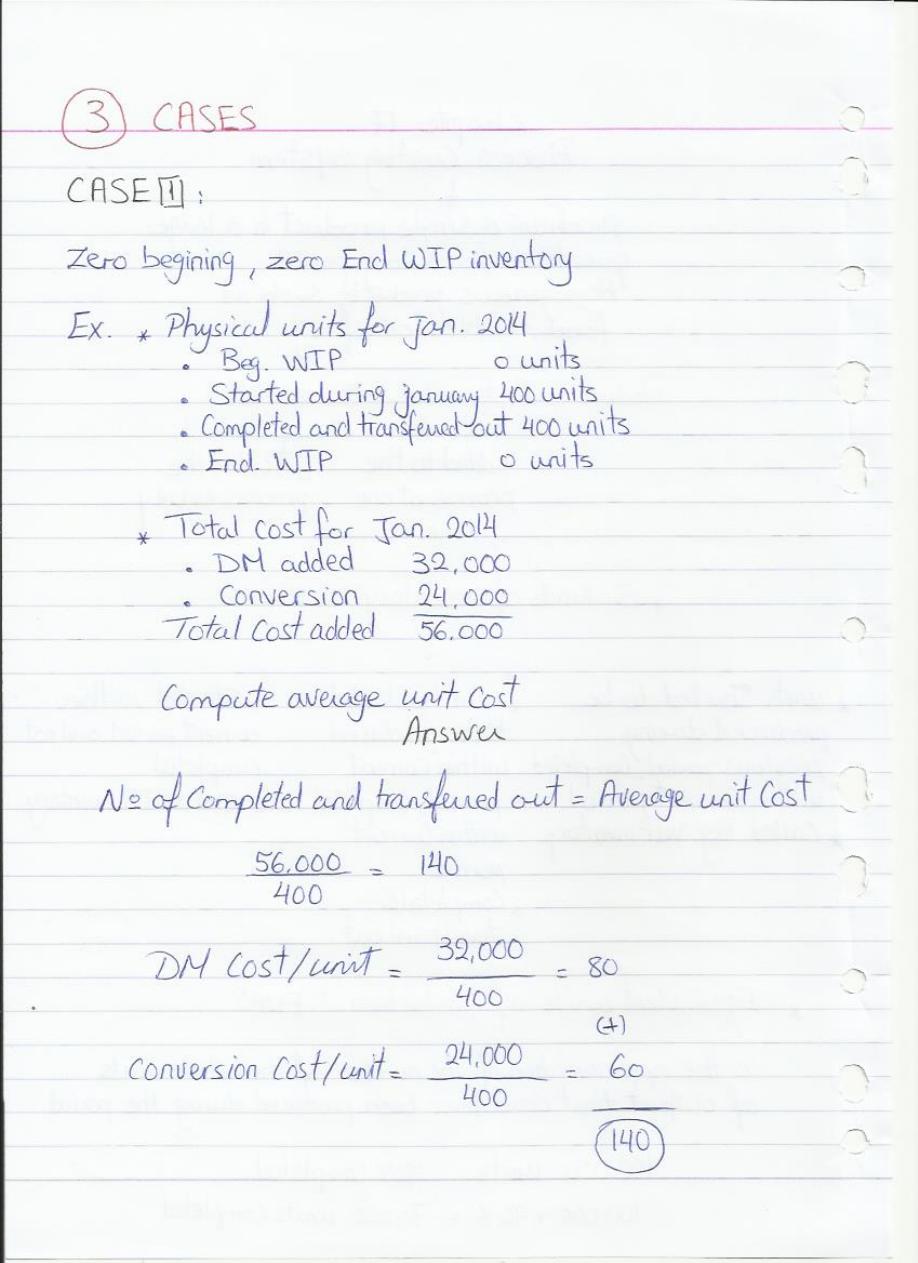 3 CASES
CASE 1 :
Zero begining, zero End WIP inventory
Ex. * Physical units for Jan. 2014
• Beg. WIP 0 units
• Started during january 400 units
• Completed and transferred out 400 units
• End. WIP 0 units
* Total cost for Jan. 2014
• DM added 32,000
• Conversion 24,000
Total Cost added 56.000
Compute average unit Cost
Answer
Nº of Completed and transferred out = Average unit Cost
56,000
400
= 140
DM Cost/unit = 32,000
400
= 80
(+)
Conversion Cost/unit = 24,000
400
= 60
140